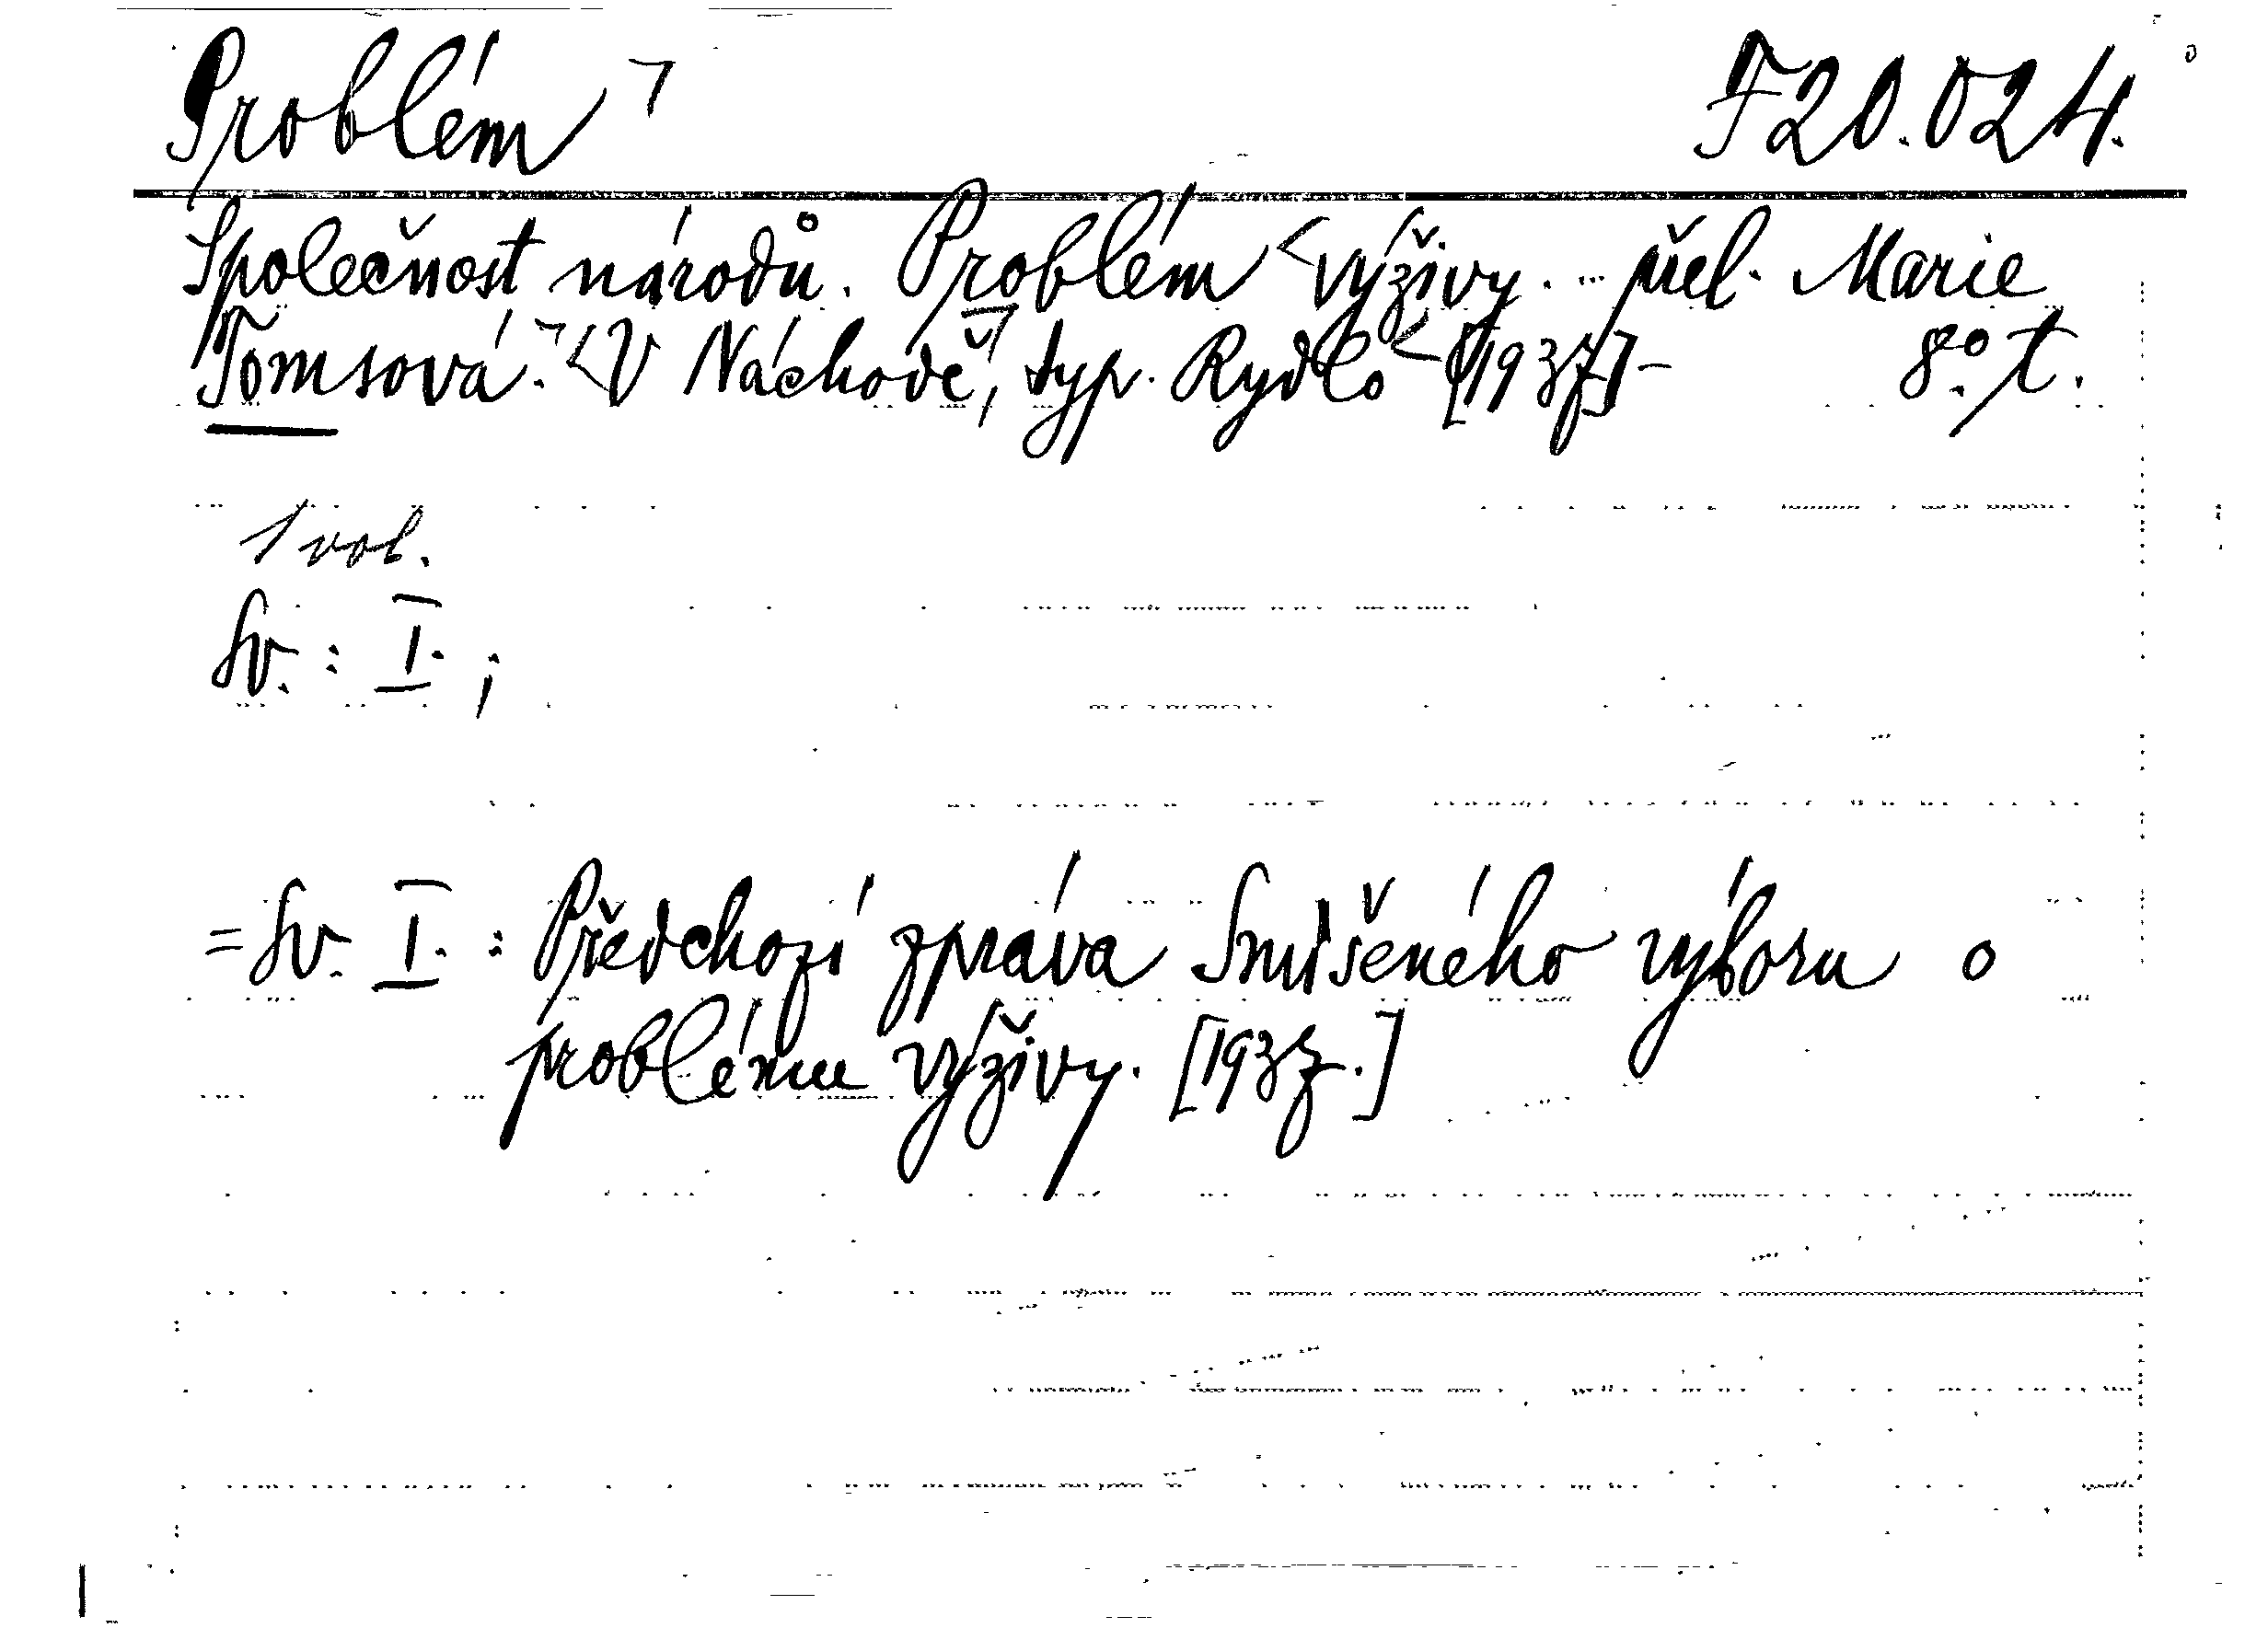 Problém ㄱ F20.024.
Společnost národů. Problém <výživy. … přel. Marie
Tomsová. ㄱ <V Náchodě, typ. Rydlo < [1937] – 8º. t.
1 vol.
Sv. : I. ;
= Sv. I. : Předchozí zpráva Smíšeného výboru o
problému výživy. [1937.]